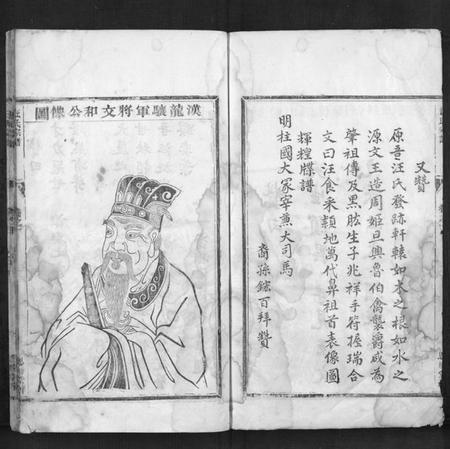 又贊
原吾汪氏發跡軒轅如木之根如水之
源文王造周姬旦興魯伯禽襲爵成為
肇祖傳及黑肱生子兆祥手符握瑞合
文曰汪食采潁地萬代鼻祖首表像圖
輝煌牒譜
明柱國大冢宰兼大司馬
裔孫鋐百拜贊
漢龍驤將軍文和公像圖